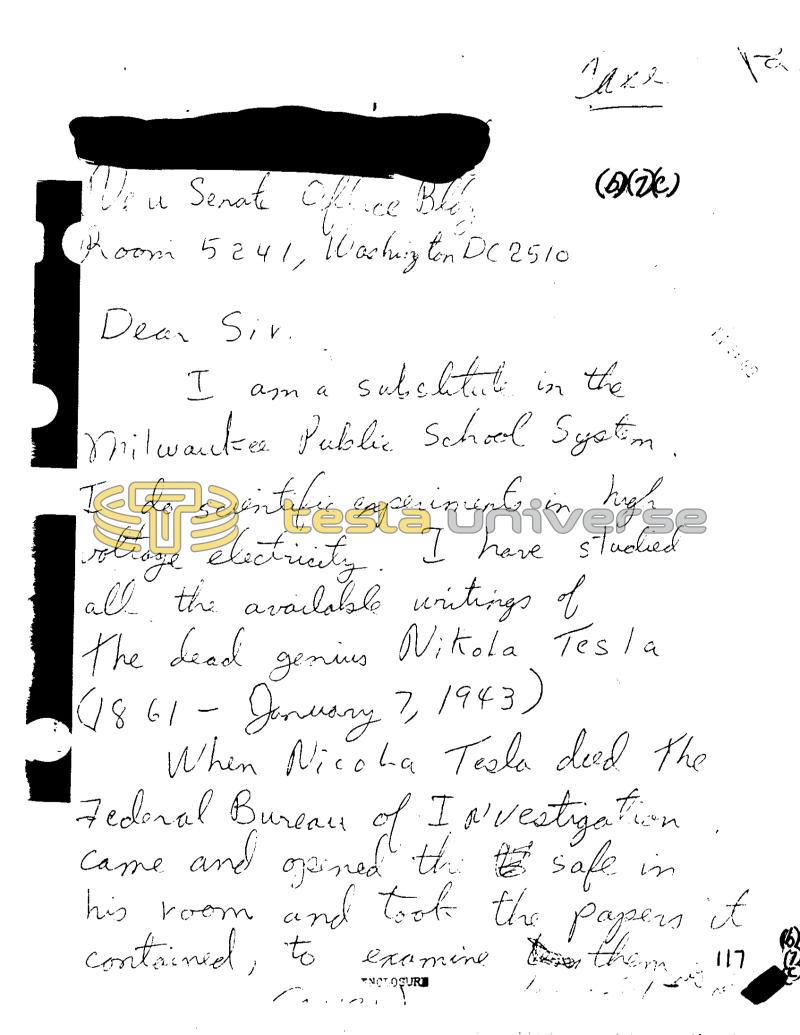 (b)(7)(c)
New Senate Office Bldg
Room 5241, Washington DC 2510
Dear Sir.
I am a substitute in the
Milwaukee Public School System.
I do scientific experiments in high
tesla universe
voltage electricity. I have studied
all the available writings of
the dead genius Nikola Tesla
(1861 – January 7, 1943)
When Nicola Tesla died the
Federal Bureau of Investigation
came and opened the safe in
his room and took the papers it
contained, to examine them
117
ENCLOSURE